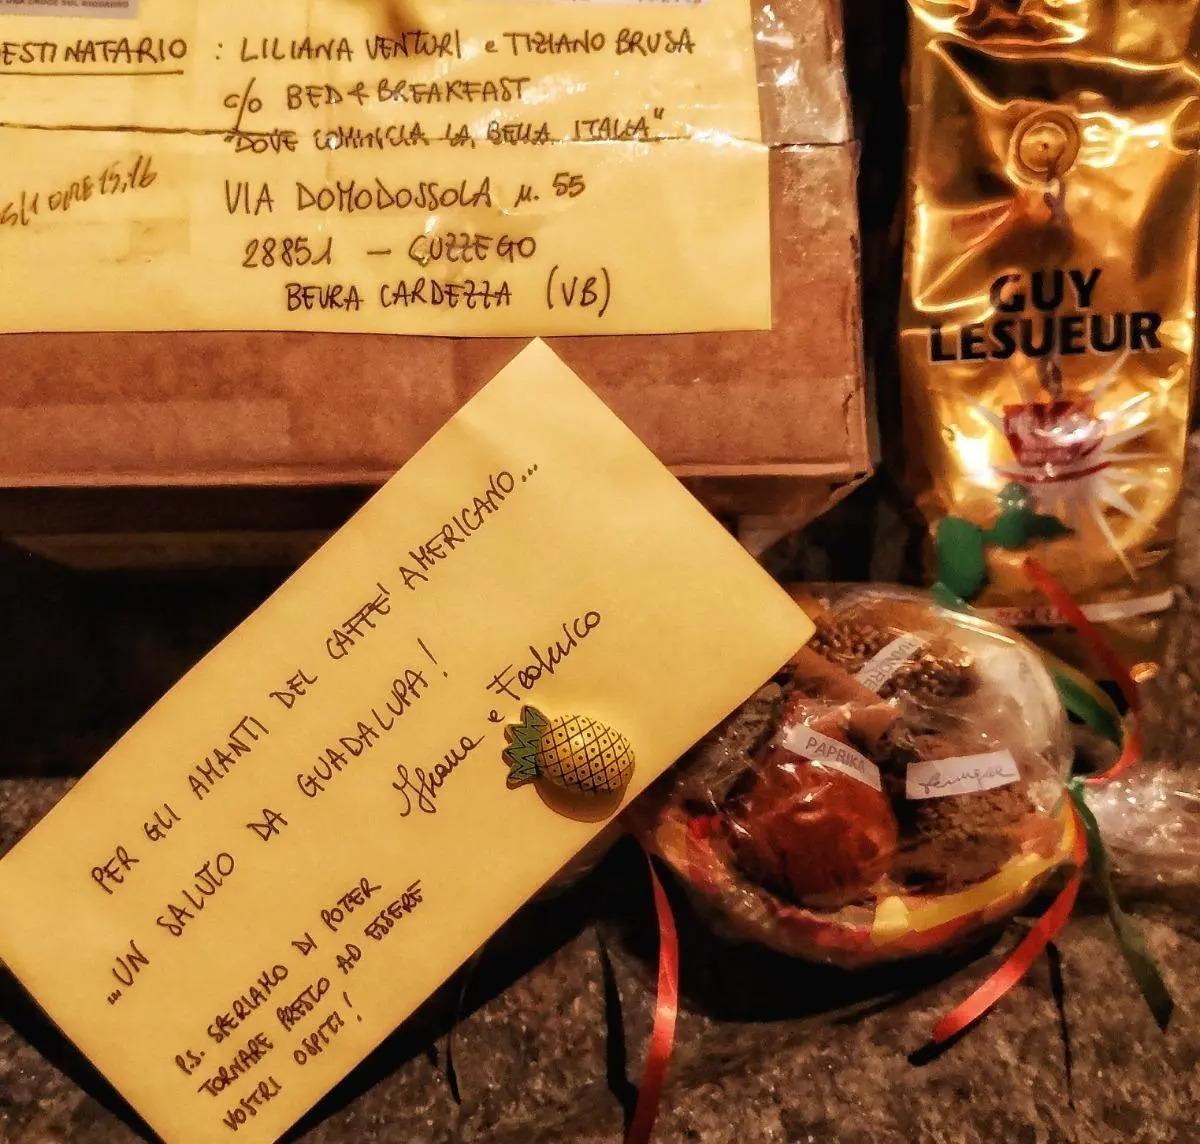 ESTINATARIO : LILIANA VENTURI e TIZIANO BRUSA
c/o BED & BREAKFAST
"DOVE COMINCIA LA BELLA ITALIA"
VIA DOMODOSSOLA n. 55
28851 - CUZZEGO
BEURA CARDEZZA (VB)
ORE 15,16
GUY
LESUEUR
PER GLI AMANTI DEL CAFFE' AMERICANO...
...UN SALUTO DA GUADALUPA!
e Federico
P.S. SPERIAMO DI POTER
TORNARE PRESTO AD ESSERE
VOSTRI OSPITI!
PAPRIKA